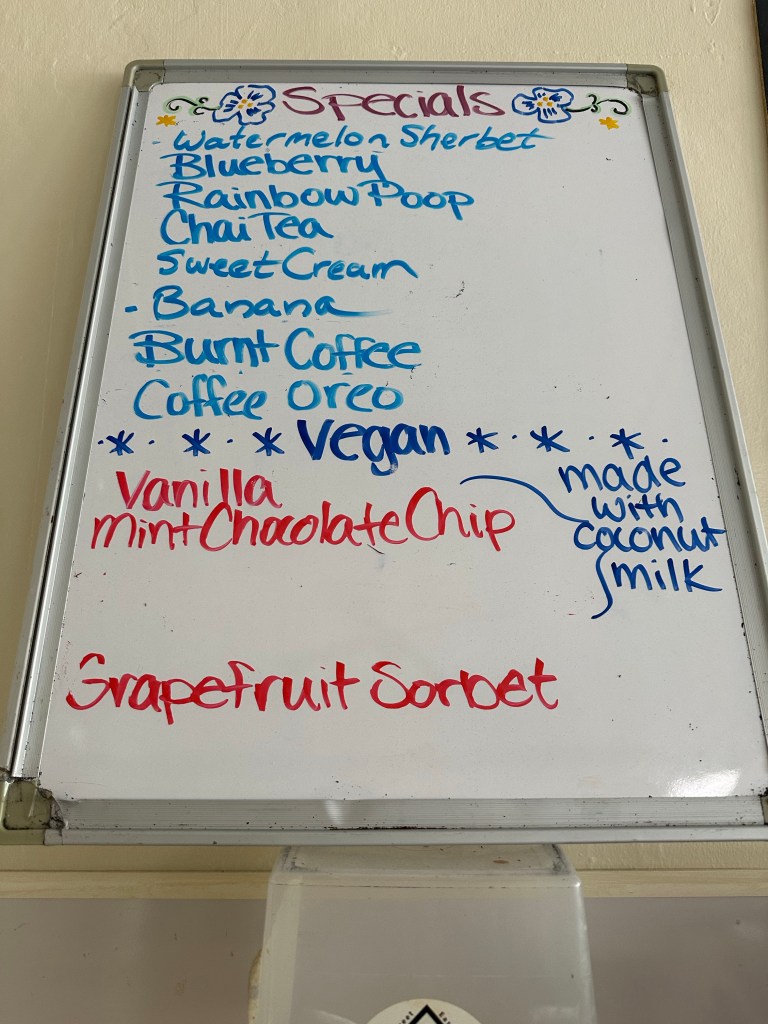 Specials
- Watermelon Sherbet
Blueberry
Rainbow Poop
Chai Tea
Sweet Cream
- Banana
Burnt Coffee
Coffee Oreo
Vegan
Vanilla
mint Chocolate Chip
made
with
coconut
milk
Grapefruit Sorbet